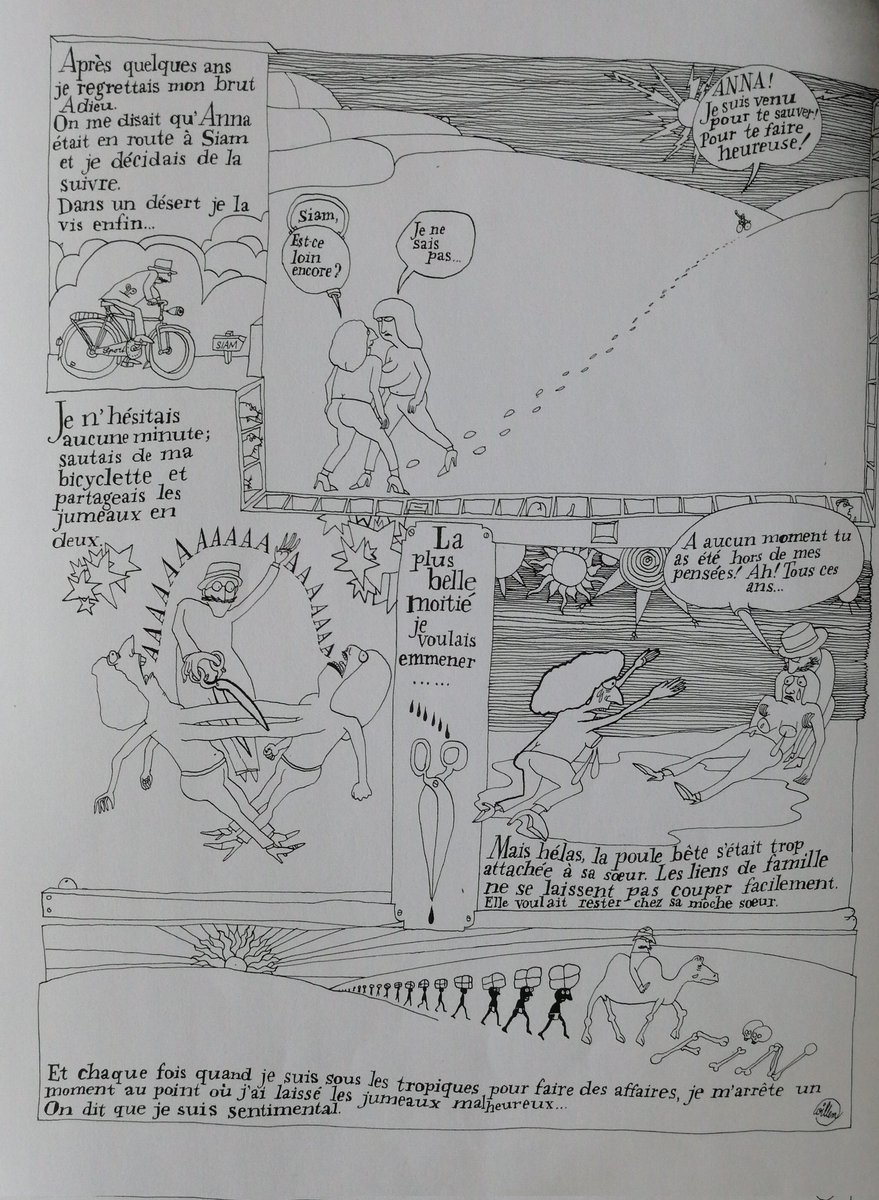 Après quelques ans
je regrettais mon brut
Adieu.
On me disait qu'Anna
était en route à Siam
et je décidais de la
suivre.
Dans un désert je la
vis enfin...
ANNA!
Je suis venu
pour te sauver!
Pour te faire
heureuse!
Siam,
Est-ce
loin
encore?
Je ne
sais
pas...
Sport
SIAM
Je n'hésitais
aucune minute;
sautais de ma
bicyclette et
partageais les
jumeaux en
deux.
AAAAAAAAAAAAAAAAAAAAA
La
plus
belle
moitié
je
voulais
emmener
......
A aucun moment tu
as été hors de mes
pensées! Ah! Tous ces
ans...
Mais hélas, la poule bête s'était trop
attachée à sa sœur. Les liens de famille
ne se laissent pas couper facilement.
Elle voulait rester chez sa moche soeur.
Et chaque fois quand je suis sous les tropiques pour faire des affaires, je m'arrête un
moment au point où j'ai laissé les jumeaux malheureux...
On dit que je suis sentimental.
Willem